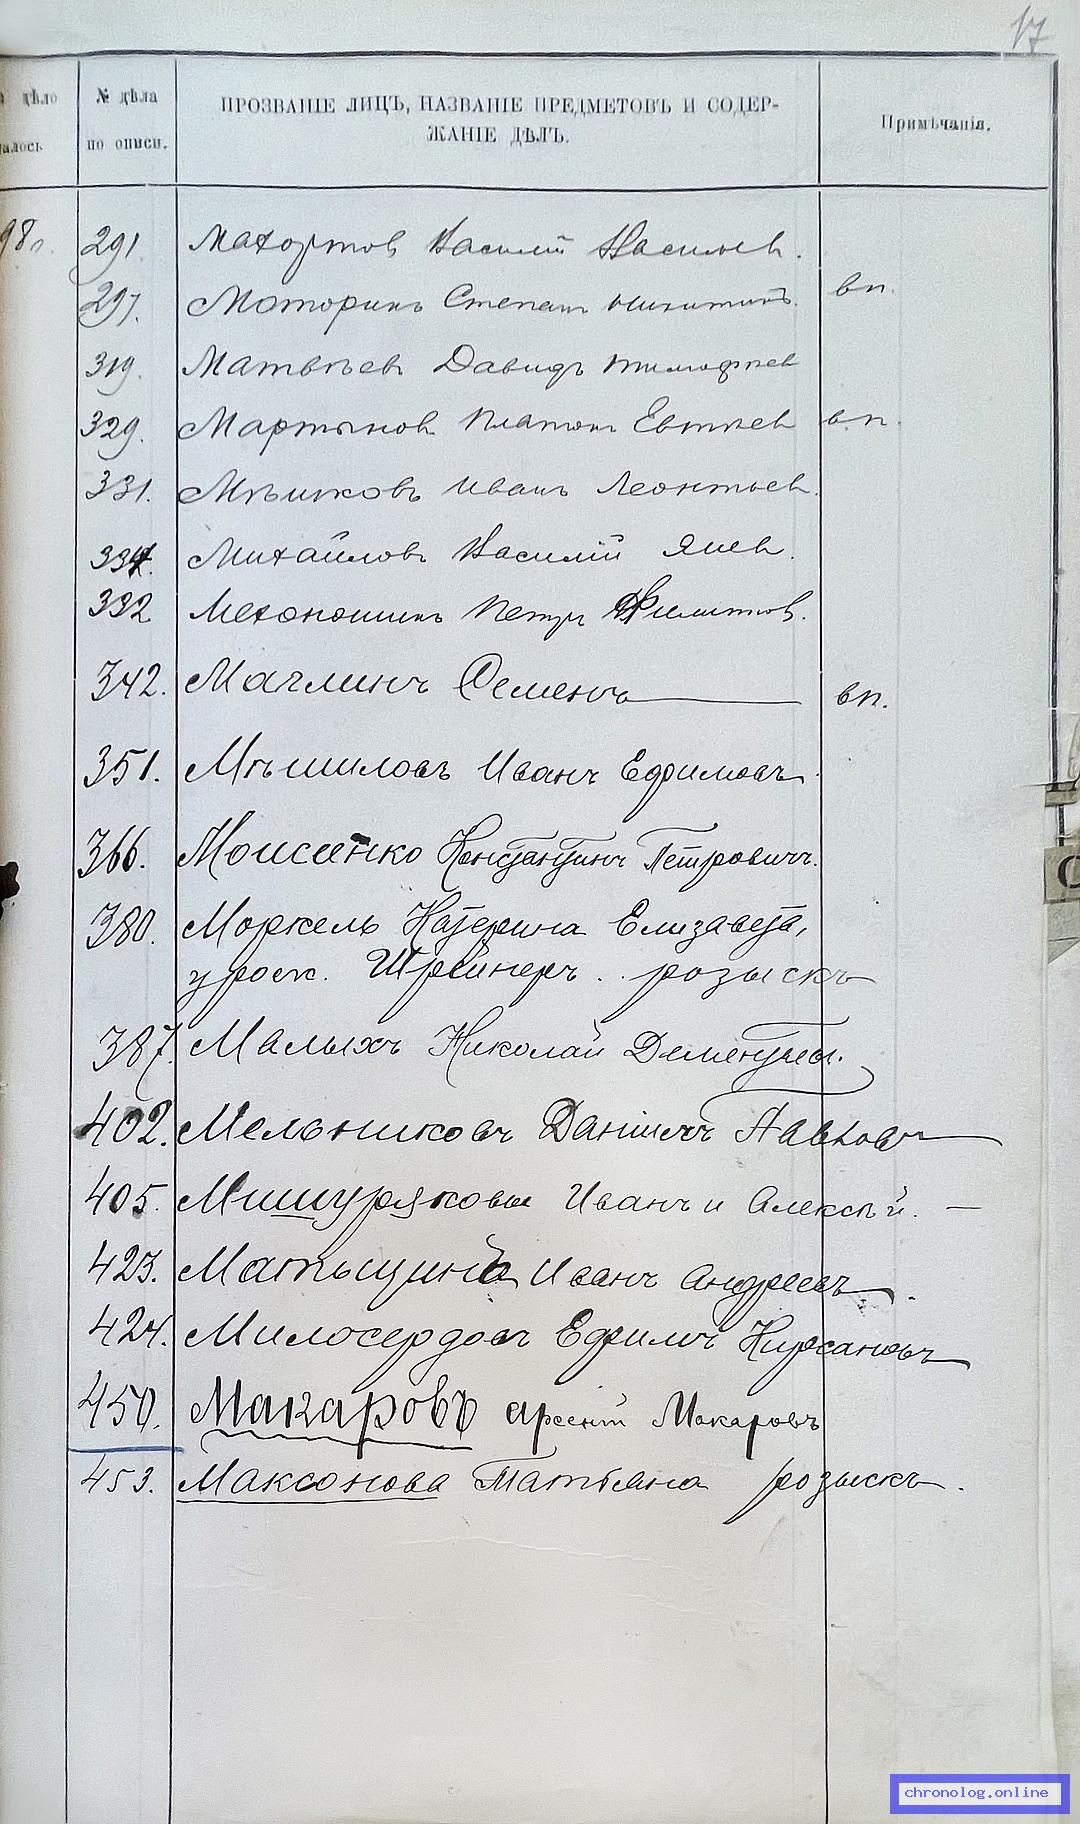 17
дѣло
№ дѣла
ПРОЗВАНІЕ ЛИЦЪ, НАЗВАНІЕ ПРЕДМЕТОВЪ И СОДЕР-
Примѣчанія.
алось
по описи.
ЖАНІЕ ДѢЛЪ.
98г.
291. Махортов Василій Васильев.
297. Моторинъ Степан Никитинъ. вп.
319. Матвѣев Давидъ Тимофеев
329. Мартынов Платон Евтеев вп.
331. Мѣшковъ Иванъ Леонтьев.
334. Михайловъ Василій Яков.
332 Мехоношинъ Петръ Филиппов.
342. Маглинъ Семенъ вп.
351. Мѣшиловъ Иванъ Ефимовъ.
366. Моисеенко Константинъ Петровичъ.
380. Моркель Катерина Елизавета,
урож. Шрейнеръ. розыскъ
387. Малыхъ Николай Дементьев.
402. Мельниковъ Даніилъ Павловъ
405. Мишуряковы Иванъ и Алексѣй. —
423. Матыцинъ Иванъ Андреевъ.
424. Милосердовъ Ефимъ Кирсановъ
450. Макаровъ Арсеній Макаровъ
453. Максонова Татьяна розыскъ.
С
chronolog.online